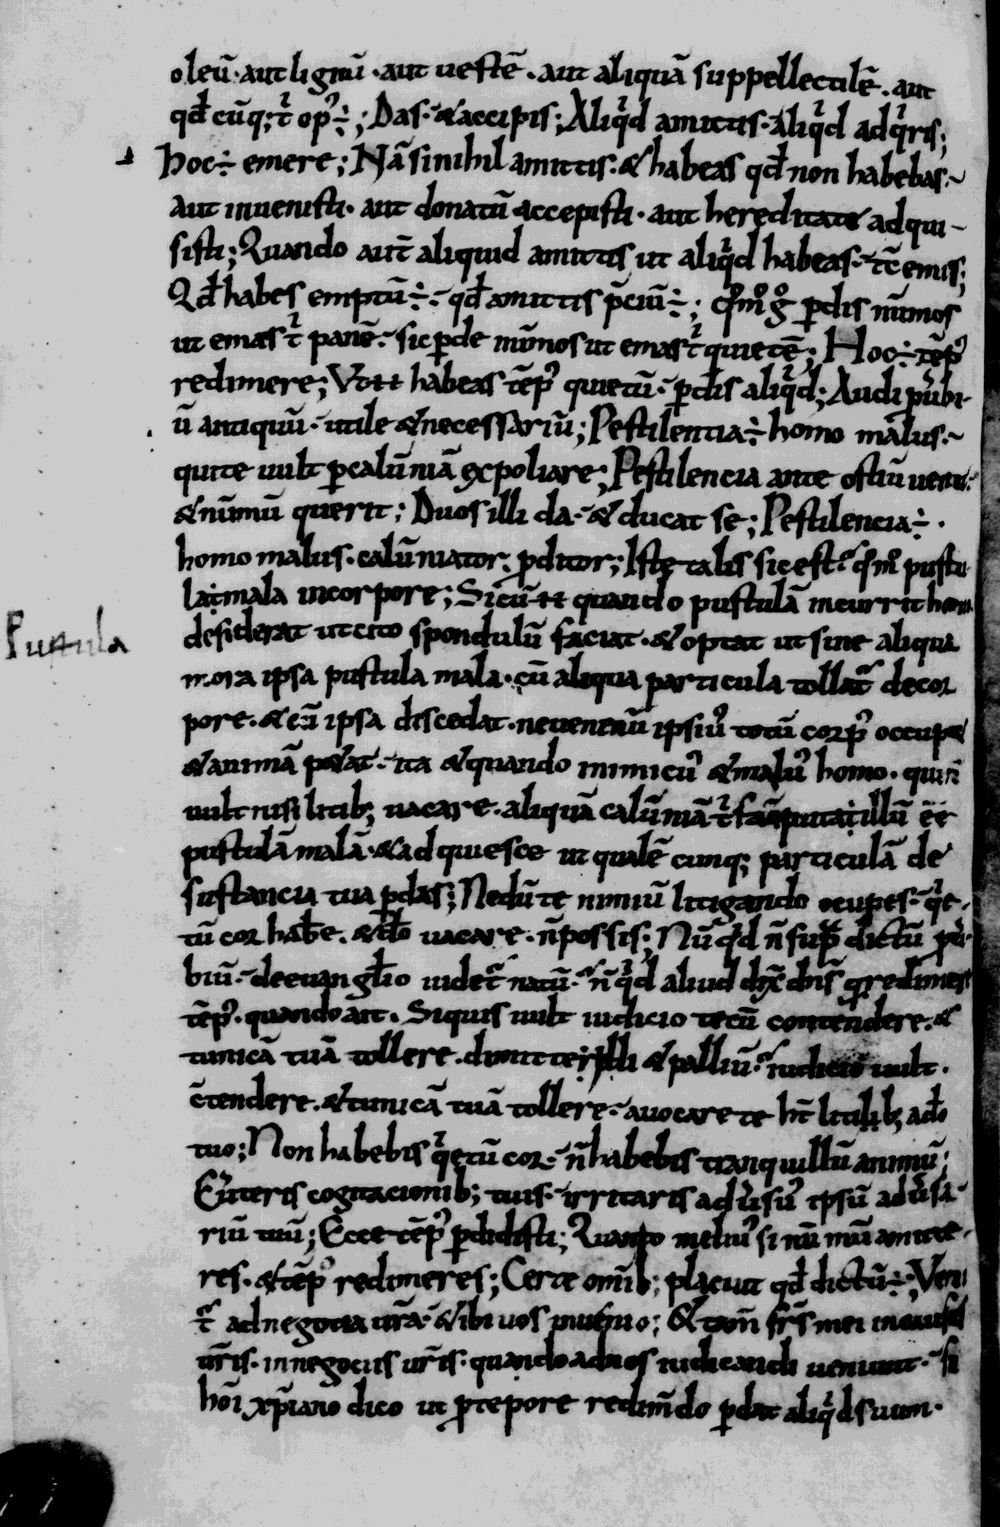 oleū · aut lignū · aut uestē · aut aliquā suppellectilē · aut
qđ cūq; t̉ opꝰ ÷; Das · & accipis; Aliqͥd amittis · aliqͥd adqͥris;
hoc ÷ emere; Nā si nihil amittis · & habeas qđ non habebas ·
aut inuenisti · aut donatū accepisti · aut hereditate adqui-
sisti; Quando aut̄ aliquid amittis ut aliqͥd habeas · tc̄ emis;
Qđ habes emptū ÷ · qđ amittis p̄ciū ÷; qͦmͦ gͦ ꝑdis nūmos
ut emas t̉ panē · sic ꝑde nūmos ut emas t̉ quietē; Hoc ÷ tēpꝰ
redimere; Vt ·n· habeas tēpꝰ quietū · ꝑdis aliqͥd; Audi puͥbi-
ū antiquū · utile & necessariū; Pestilentia ÷ homo malus ·
qui te uult ꝑ calūniā expoliare; Pestilencia ante ostiū uenit
& nūmū querit; Duos illi da · & ducat se; Pestilencia ÷ ·
homo malus · calūniator · ꝓditor; Iste talis sic est · qͦmͦ pustu
la mala in corpore; Sicū ·n· quando pustulā incurrit homo
desiderat ut cito spondulū faciat · & optat ut sine aliqua
Pustula
mora ipsa pustula mala · cū aliqua particula tollat᷑ de cor
pore · & cū ipsa discedat · ne uenenū ipsiꝰ totū corpꝰ occupet
& animā ꝑdat · ita & quando inimicꝰ & malꝰ homo · qui n̄
uult nisi litib; uacare · aliquā calūniā t̉ fac̄ puta illū ēē
pustulā malā · & adquiesce ut qualē cunq; particulā de
sustancia tua ꝑdas; Ne dū te nimiū litigando occupes · qͥe-
tū cor habe · & đo uacare · n̄ possis; Nū qͥd n̄ sup̄ dictū puͥ-
biū · de euanglio uidet᷑ natū · n̄ qͥd aliud dix̄ dn̄s qͣ redimeret
tēpꝰ · quando ait · Siquis uult iudicio tecū contendere · &
tunicā tuā tollere · dimitte illi & palliū · iudicio uult ·
c̄tendere · & tunicā tuā tollere · auocare te ht̄ litib; a đo
tuo; Non habebis qͥetū cor · n̄ habebis tranquillū animū;
Eūteris cogitacionib; tuis · irritaris aduͥsuꝰ ipsū aduͥsa-
riū tuū; Ecce tēpꝰ ꝑdidisti; Quanto meliꝰ si nūmū amitte-
res · & tēpꝰ redimeres; Certe omīb; placuit qđ dictū ÷; Ven
t᷑ ad negotia ur̄a · & ibi uos inuenio; & tam̄ fr̄s mei in causis
ur̄is · in negociis ur̄is · quando ad nos iudicandi ueniunt · si
hoī xp̄iano dico ut ꝓ tēpore redimēdo ꝑdat aliqͥd suum ·